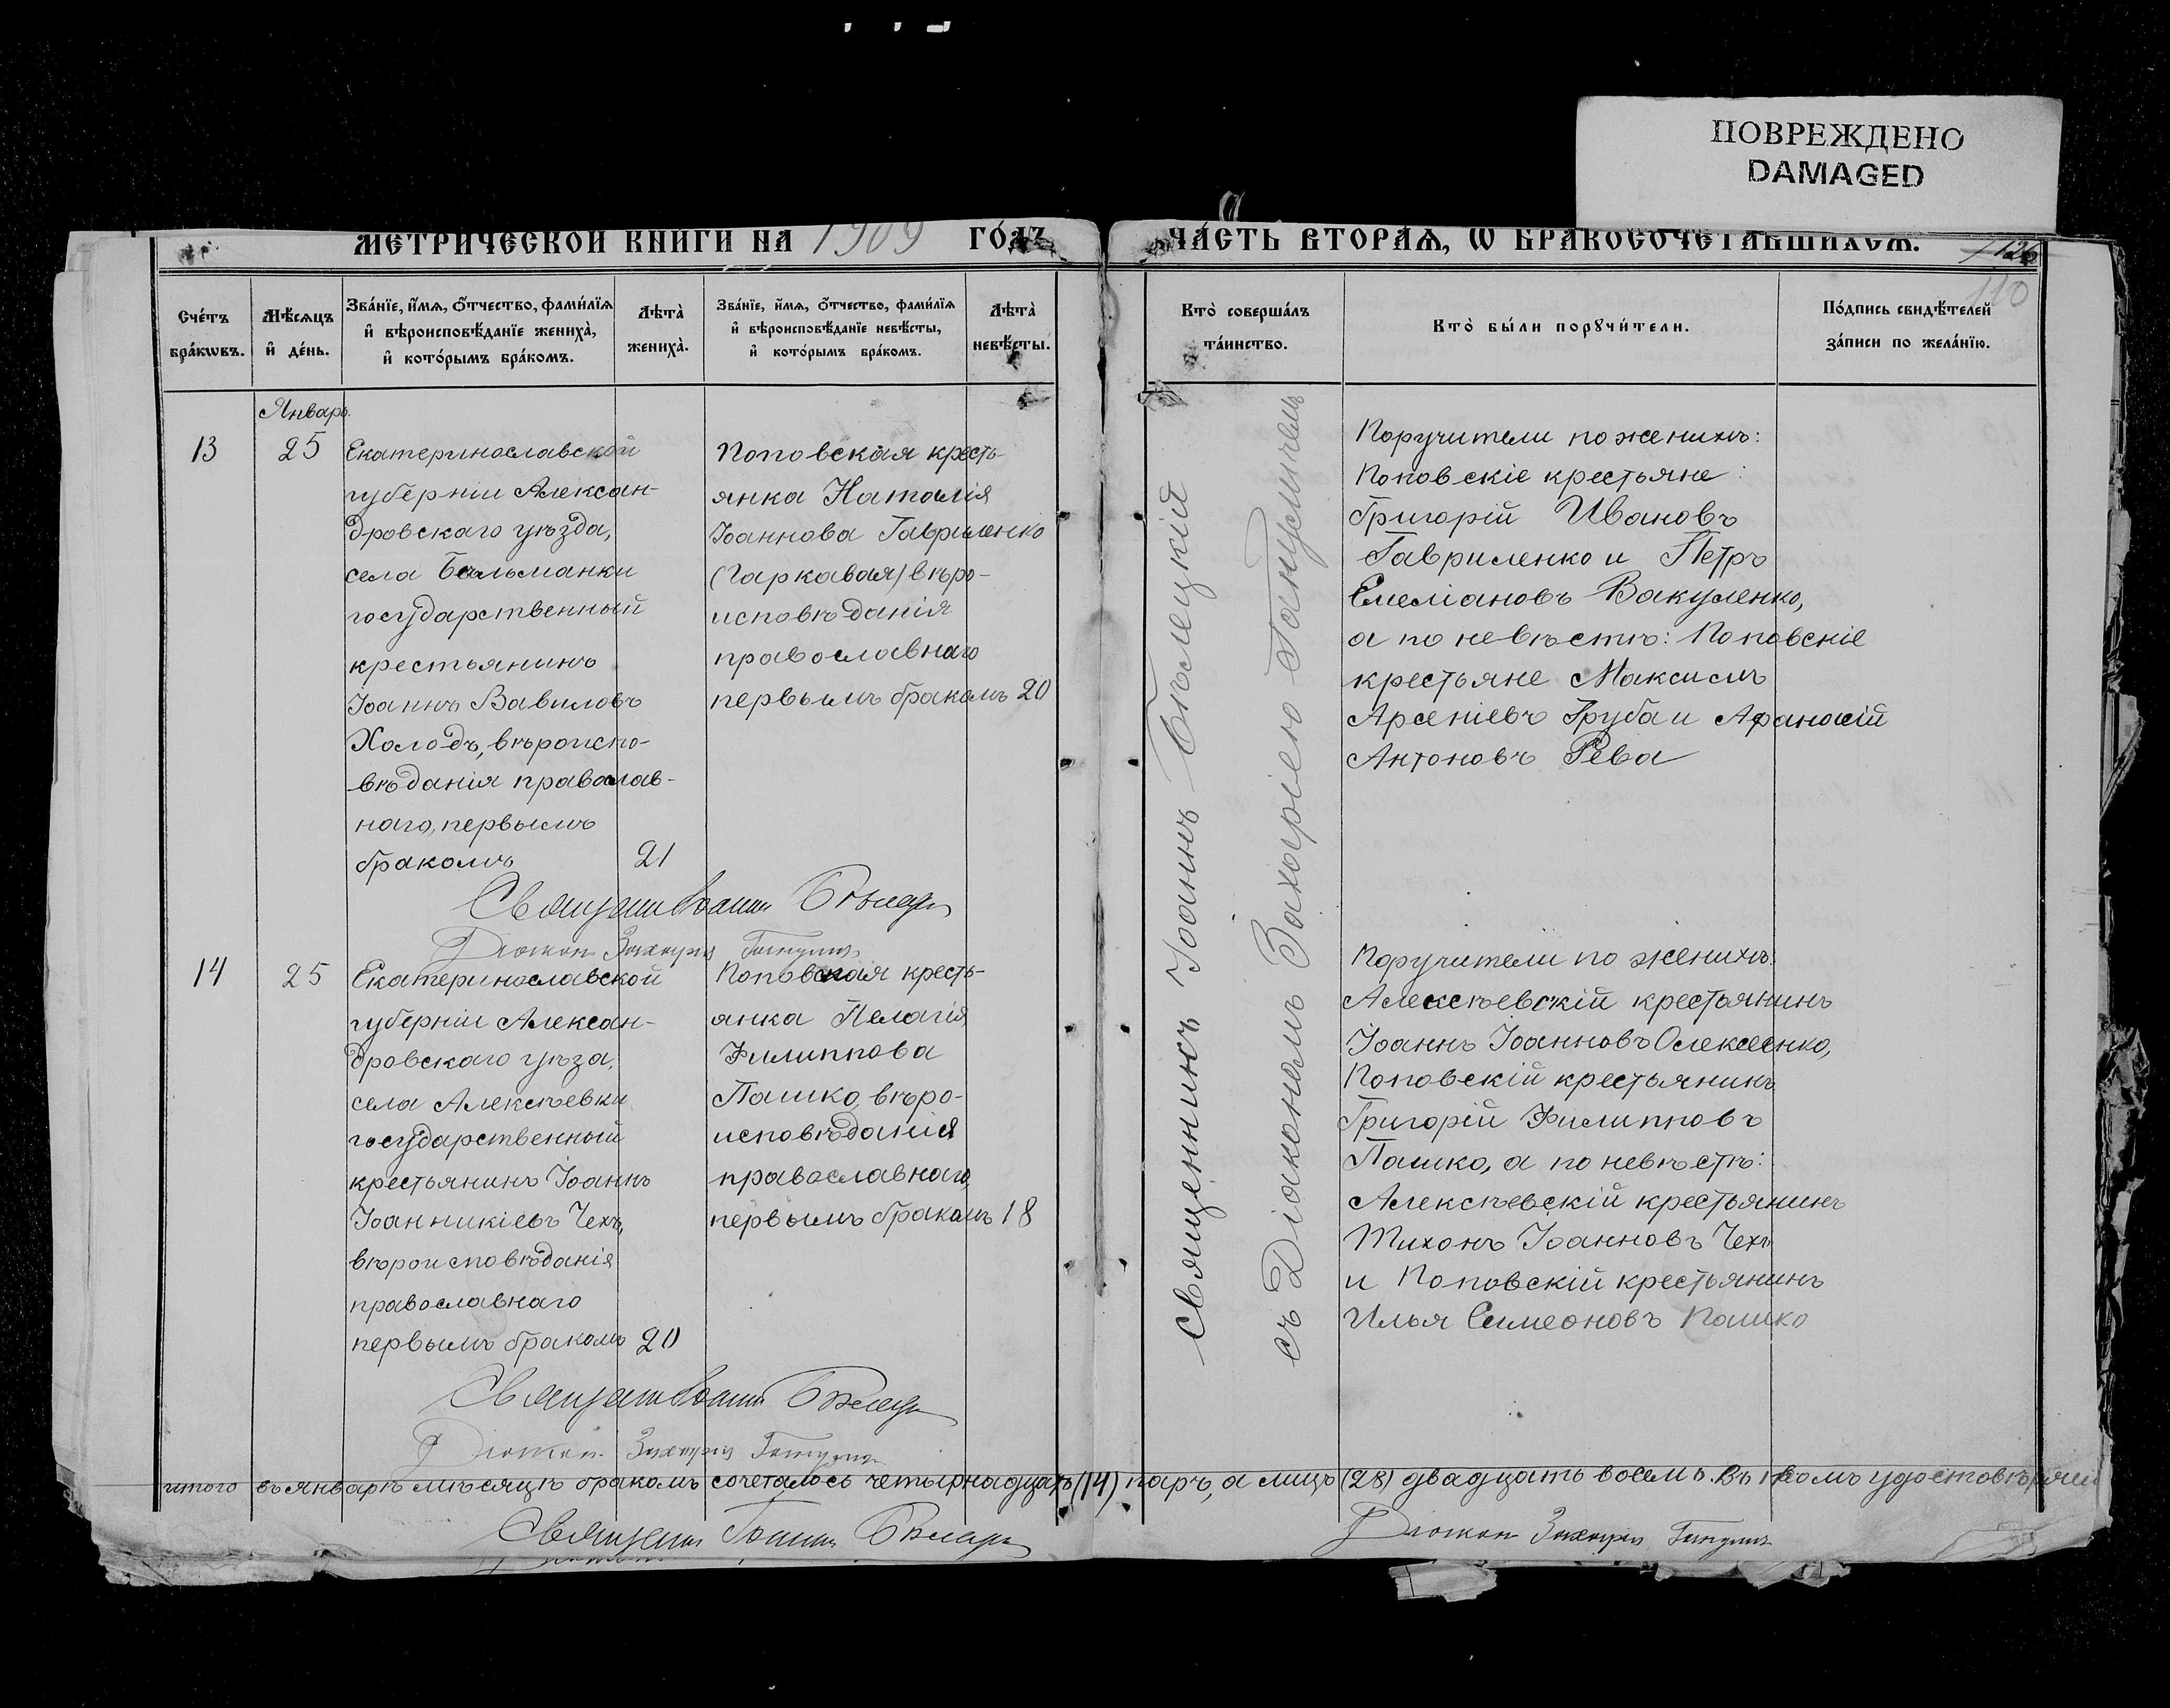 ПОВРЕЖДЕНО
DAMAGED
МЕТРИЧЕСКОЙ КНИГИ НА 1909 ГО́ДЪ
ЧА́СТЬ ВТОРАѦ, Ѡ БРАКОСОЧЕТАВШИХСѦ.
126
110
Сче́тъ бра́кѡвъ.
Мѣ́сѧцъ и҆ де́нь.
Зва́нїе, и҆́мѧ, ѻ҆́тчество, фами́лїѧ
и҆ вѣроисповѣ́данїе жениха̀,
и҆ кото́рымъ бра́комъ.
Лѣта̀ жениха̀.
Зва́нїе, и҆́мѧ, ѻ҆́тчество, фами́лїѧ
и҆ вѣроисповѣ́данїе невѣ́сты,
и҆ кото́рымъ бра́комъ.
Лѣта̀ невѣ́сты.
Кто̀ соверша́лъ
та́инство.
Кто̀ бы́ли порꙋчи́тели.
По́дпись свидѣ́телей
за́писи по жела́нїю.
Январь.
13
25
Екатеринославской
губерніи Алексан-
дровскаго уѣзда,
села Бальманки
государственный
крестьянинъ
Іоаннъ Вавиловъ
Холодъ, вѣроиспо-
вѣданія православ-
наго, первымъ
бракомъ 21
Поповская кресть-
янка Наталія
Іоаннова Гавриленко
(Гаркавая) вѣро-
исповѣданія
православнаго
первымъ бракомъ 20
Священникъ Іоаннъ Бѣлецкій
съ Діакономъ Захаріею
Поручители по женихѣ:
Поповскіе крестьяне:
Григорій Ивановъ
Гавриленко и Петръ
Емеліановъ Вакуленко,
а по невѣстѣ: Поповскіе
крестьяне Максимъ
Арсеніевъ Груба и Афанасій
Антоновъ Рева
Священник Іоанн Бѣлецк
Діакон Захарія
14
25
Екатеринославской
губерніи Алексан-
дровскаго уѣза,
села Алексѣевки
государственный
крестьянинъ Іоаннъ
Іоанникіевъ Чехъ,
вѣроисповѣданія
православнаго
первымъ бракомъ 20
Поповская кресть-
янка Пелагія
Филиппова
Пашко, вѣро-
исповѣданія
православнаго,
первымъ бракомъ 18
Поручители по женихѣ:
Алексѣевскій крестьянинъ
Іоаннъ Іоанновъ Олексеенко,
Поповскій крестьянинъ
Григорій Филипповъ
Пашко, а по невѣстѣ:
Алексѣевскій крестьянинъ
Тихонъ Іоанновъ Чехъ
и Поповскій крестьянинъ
Илья Симеоновъ Пашко
Священник Іоанн Бѣлецк
Діакон Захарія
итого въ январѣ мѣсяцѣ бракомъ сочеталось четырнадцать (14) паръ, а лицъ (28) двадцать восемь. Въ чемъ удостовѣряемъ
Священник Іоанн Бѣлецк
Діакон Захарія